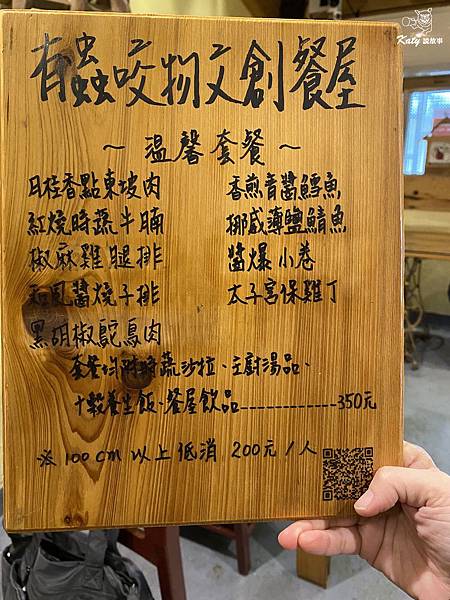 Katy 說故事
有蟲咬物文創餐屋
～溫馨套餐～
月桂香點東坡肉
香煎青醬鱈魚
紅燒時蔬牛腩
挪威薄鹽鯖魚
椒麻雞腿排
醬爆小卷
和風醬燒子排
太子宮保雞丁
黑胡椒鴕鳥肉
套餐均附時蔬沙拉、主廚湯品、
十穀養生飯、餐屋飲品-------------350元
※100cm以上低消 200元/人